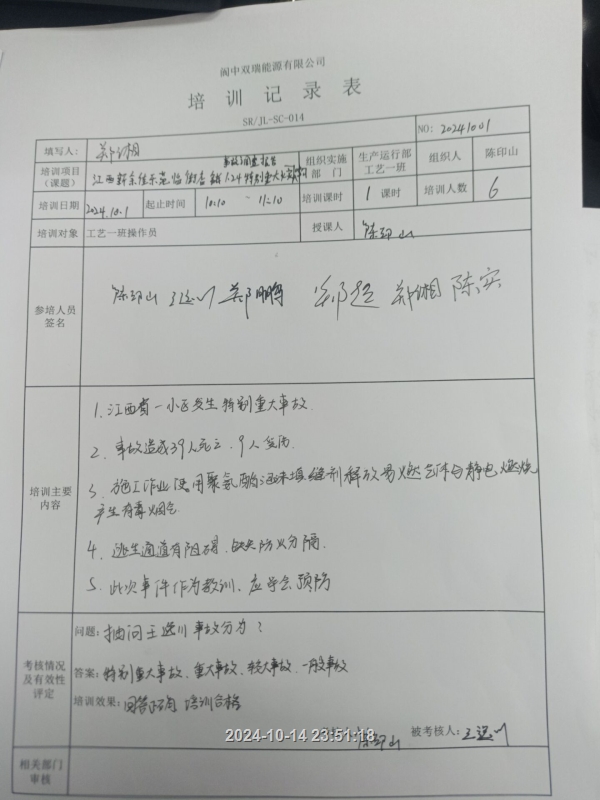 阆中双瑞能源有限公司
培训记录表
SR/JL-SC-014
NO: 20241001
填写人： 郑湘
培训项目（课题） 江西新余佳乐苑临街店铺1.24特别重大火灾事故调查报告 组织实施部门 生产运行部工艺一班 组织人 陈印山
培训日期 2024.10.1 起止时间 10:10 ~ 11:10 培训课时 1课时 培训人数 6
培训对象 工艺一班操作员 授课人 陈印山
参培人员签名 陈印山 王远川 郑鹏 郑超 郑湘 陈实
培训主要内容
1. 江西省一小区发生特别重大事故
2. 事故造成39人死亡，9人受伤.
3. 施工作业使用聚氨酯泡沫填缝剂释放易燃气体与静电燃烧
产生有毒烟气
4. 逃生通道有阻碍，缺失防火分隔.
5. 此次事件作为教训、应学会预防
考核情况及有效性评定
问题：抽问王远川事故分为？
答案：特别重大事故、重大事故、较大事故、一般事故
培训效果：回答正确 培训合格
陈印山 被考核人：王远川
2024-10-14 23:51:18
相关部门审核